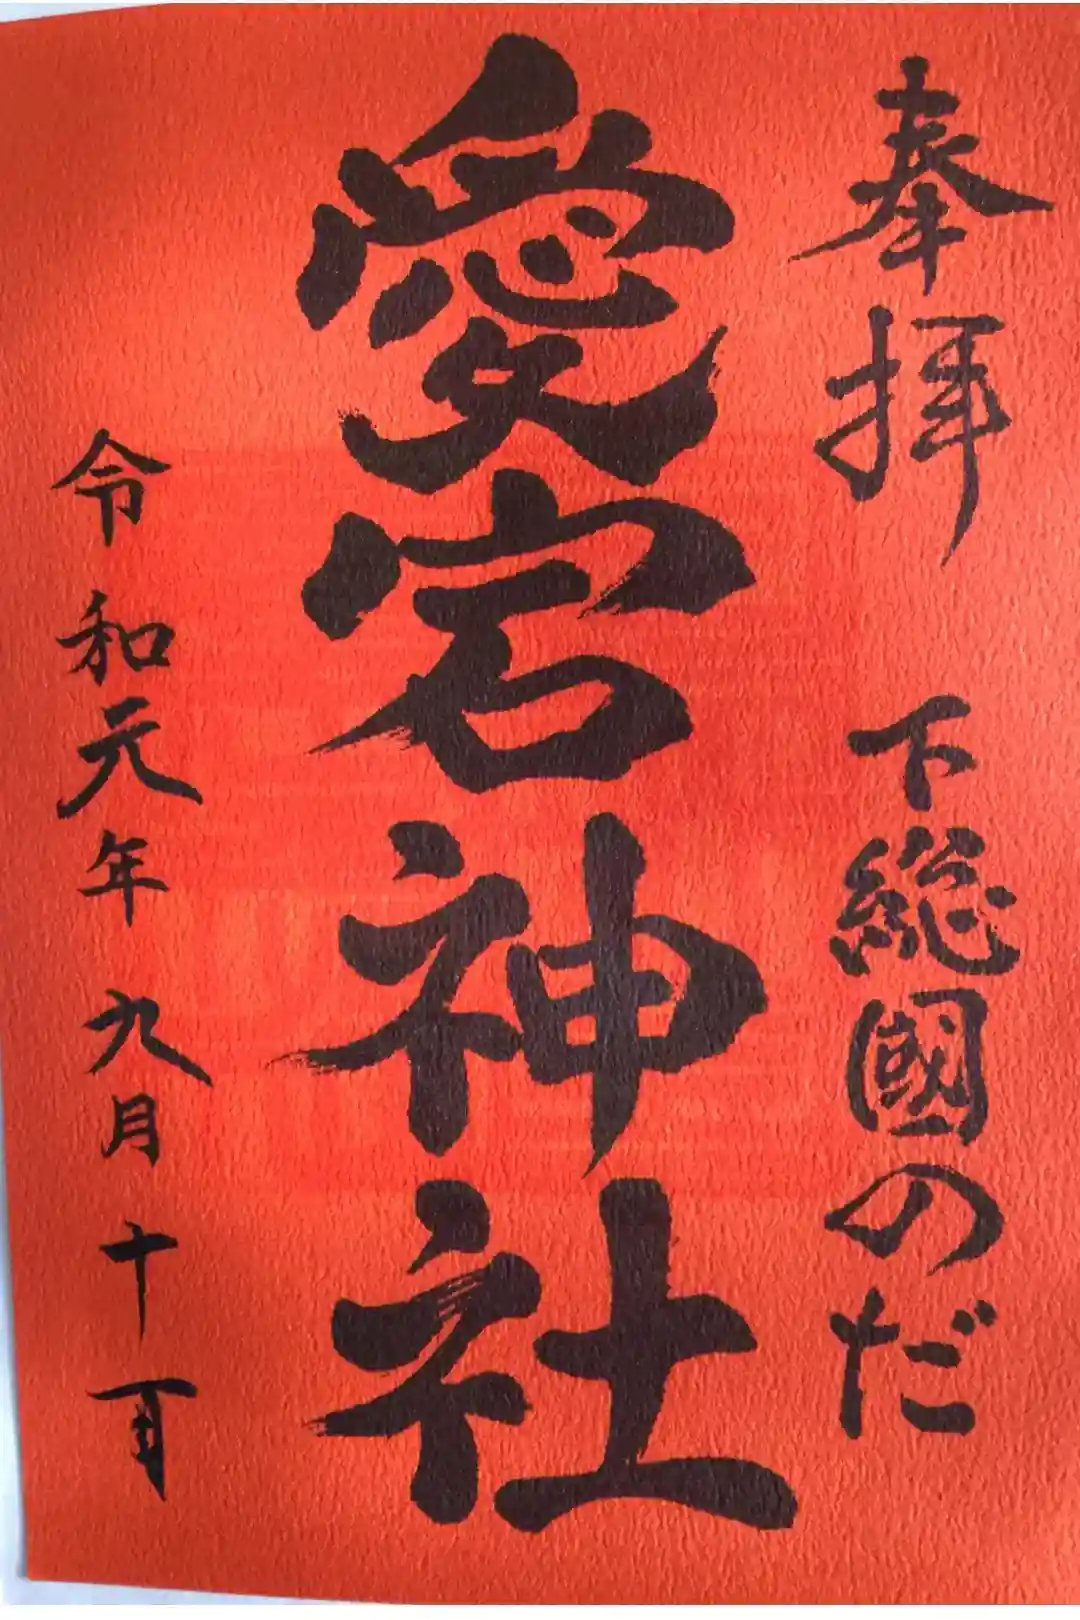 奉拝 下総國のだ
愛宕神社
令和元年九月十一日